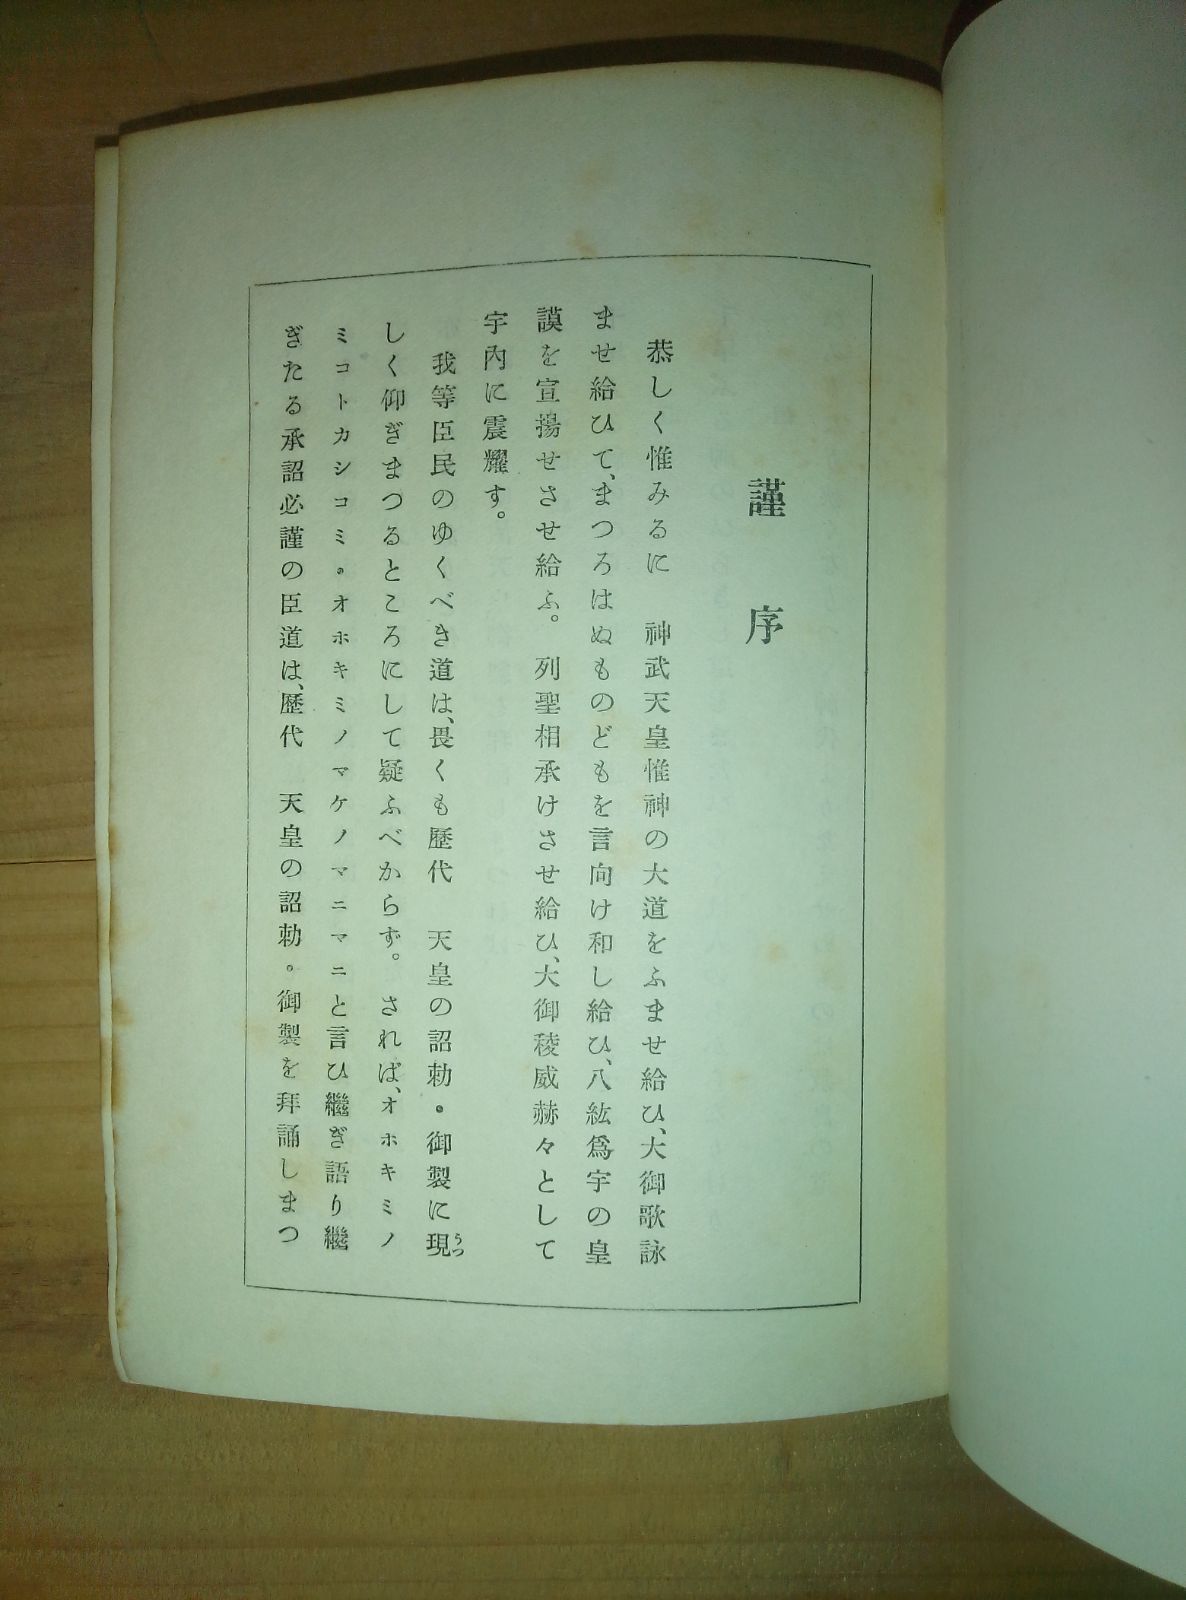 謹序
恭しく惟みるに　神武天皇惟神の大道をふませ給ひ、大御歌詠
ませ給ひて、まつろはぬものどもを言向け和し給ひ、八紘爲宇の皇
謨を宣揚せさせ給ふ。　列聖相承けさせ給ひ、大御稜威赫々として
宇內に震耀す。
我等臣民のゆくべき道は、畏くも歷代　天皇の詔勅・御製に現
うつ
しく仰ぎまつるところにして疑ふべからず。されば、オホキミノ
ミコトカシコミ・オホキミノマケノマニマニと言ひ繼ぎ語り繼
ぎたる承詔必謹の臣道は、歷代　天皇の詔勅・御製を拜誦しまつ